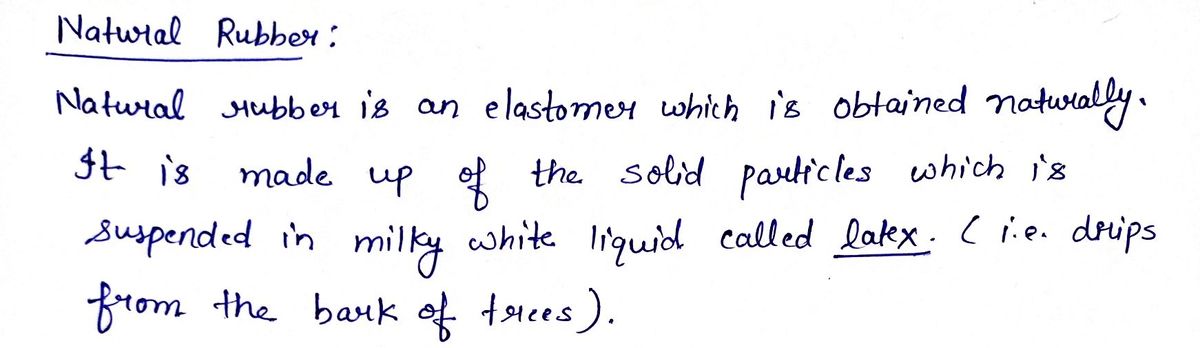 Natural Rubber:
Natural rubber is an elastomer which is obtained naturally.
It is made up of the solid particles which is
suspended in milky white liquid called latex. (i.e. drips
from the bark of trees).